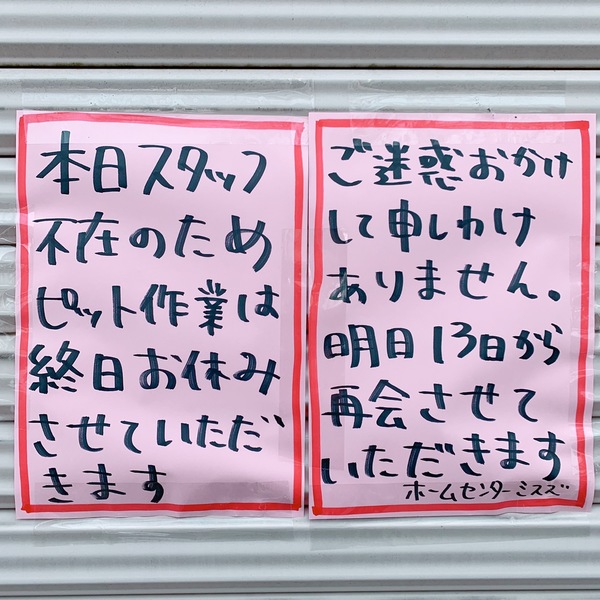 本日スタッフ
不在のため
ピット作業は
終日お休み
させていただ
きます
ご迷惑おかけ
して申しわけ
ありません。
明日13日から
再会させて
いただきます
ホームセンターミスズ